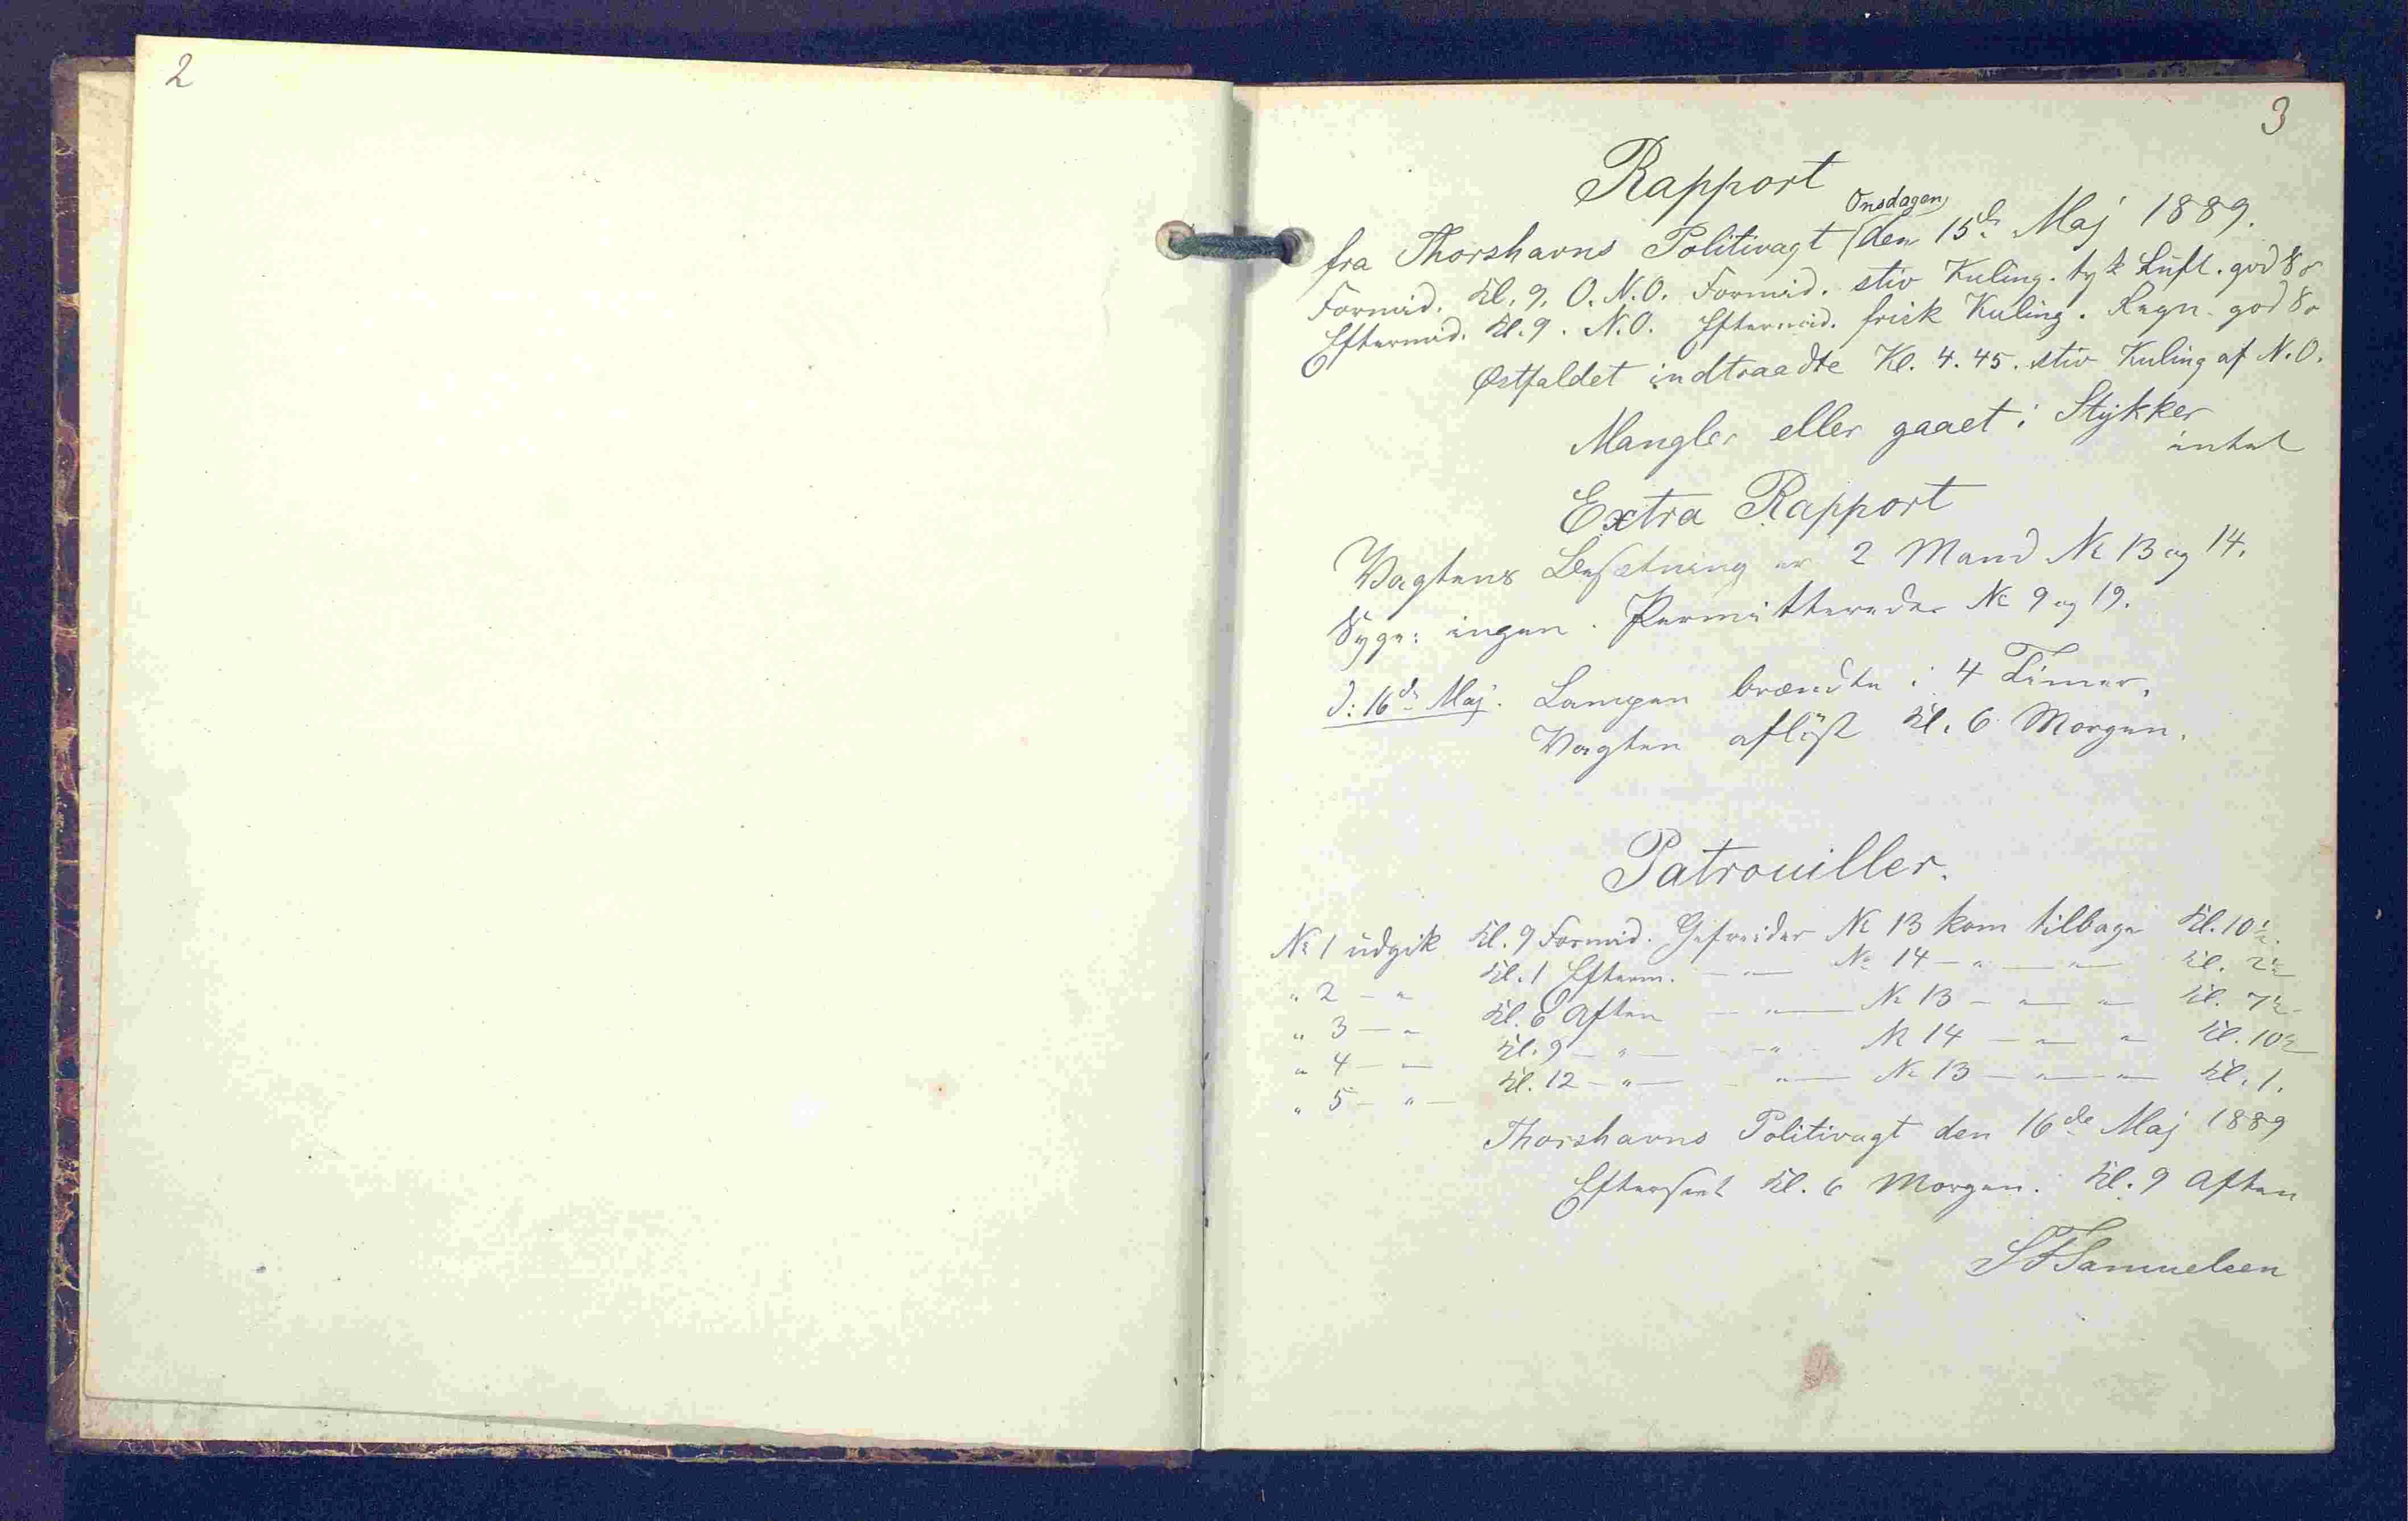 2
3
Rapport
Onsdagen
fra Thorshavns Politivagt den 15de Maj 1889.
Formid. Kl. 9. O.N.O. Formid. stiv Kuling. tyk Luft. god Sø
Eftermid. Kl. 9. N.O. Eftermid. frisk Kuling. Regn. god Sø
Østfaldet indtraadte Kl. 4.45. stiv Kuling af N.O.
Mangler eller gaaet i Stykker
intet
Extra Rapport
Vagtens Besætning er 2 Mand № 13 og 14.
Syge: ingen. Permitterede № 9 og 19.
d: 16de Maj. Lampen brændte i 4 Timer.
Vagten afløst Kl. 6 Morgen.
Patrouiller.
№ 1 udgik Kl. 9 Formid. Gefreider № 13 kom tilbage Kl. 10½.
" 2 — " Kl. 1 Efterm. — " — № 14 — " — " — Kl. 2½
" 3 — " Kl. 6 Aften — " — № 13 — " — " — Kl. 7½
" 4 — " Kl. 9 — " — " — № 14 — " — " Kl. 10½
" 5 — " — Kl. 12 — " — " — № 13 — " — " — Kl. 1.
Thorshavns Politivagt den 16de Maj 1889
Efterseet Kl. 6 Morgen. Kl. 9 Aften
Samuelsen